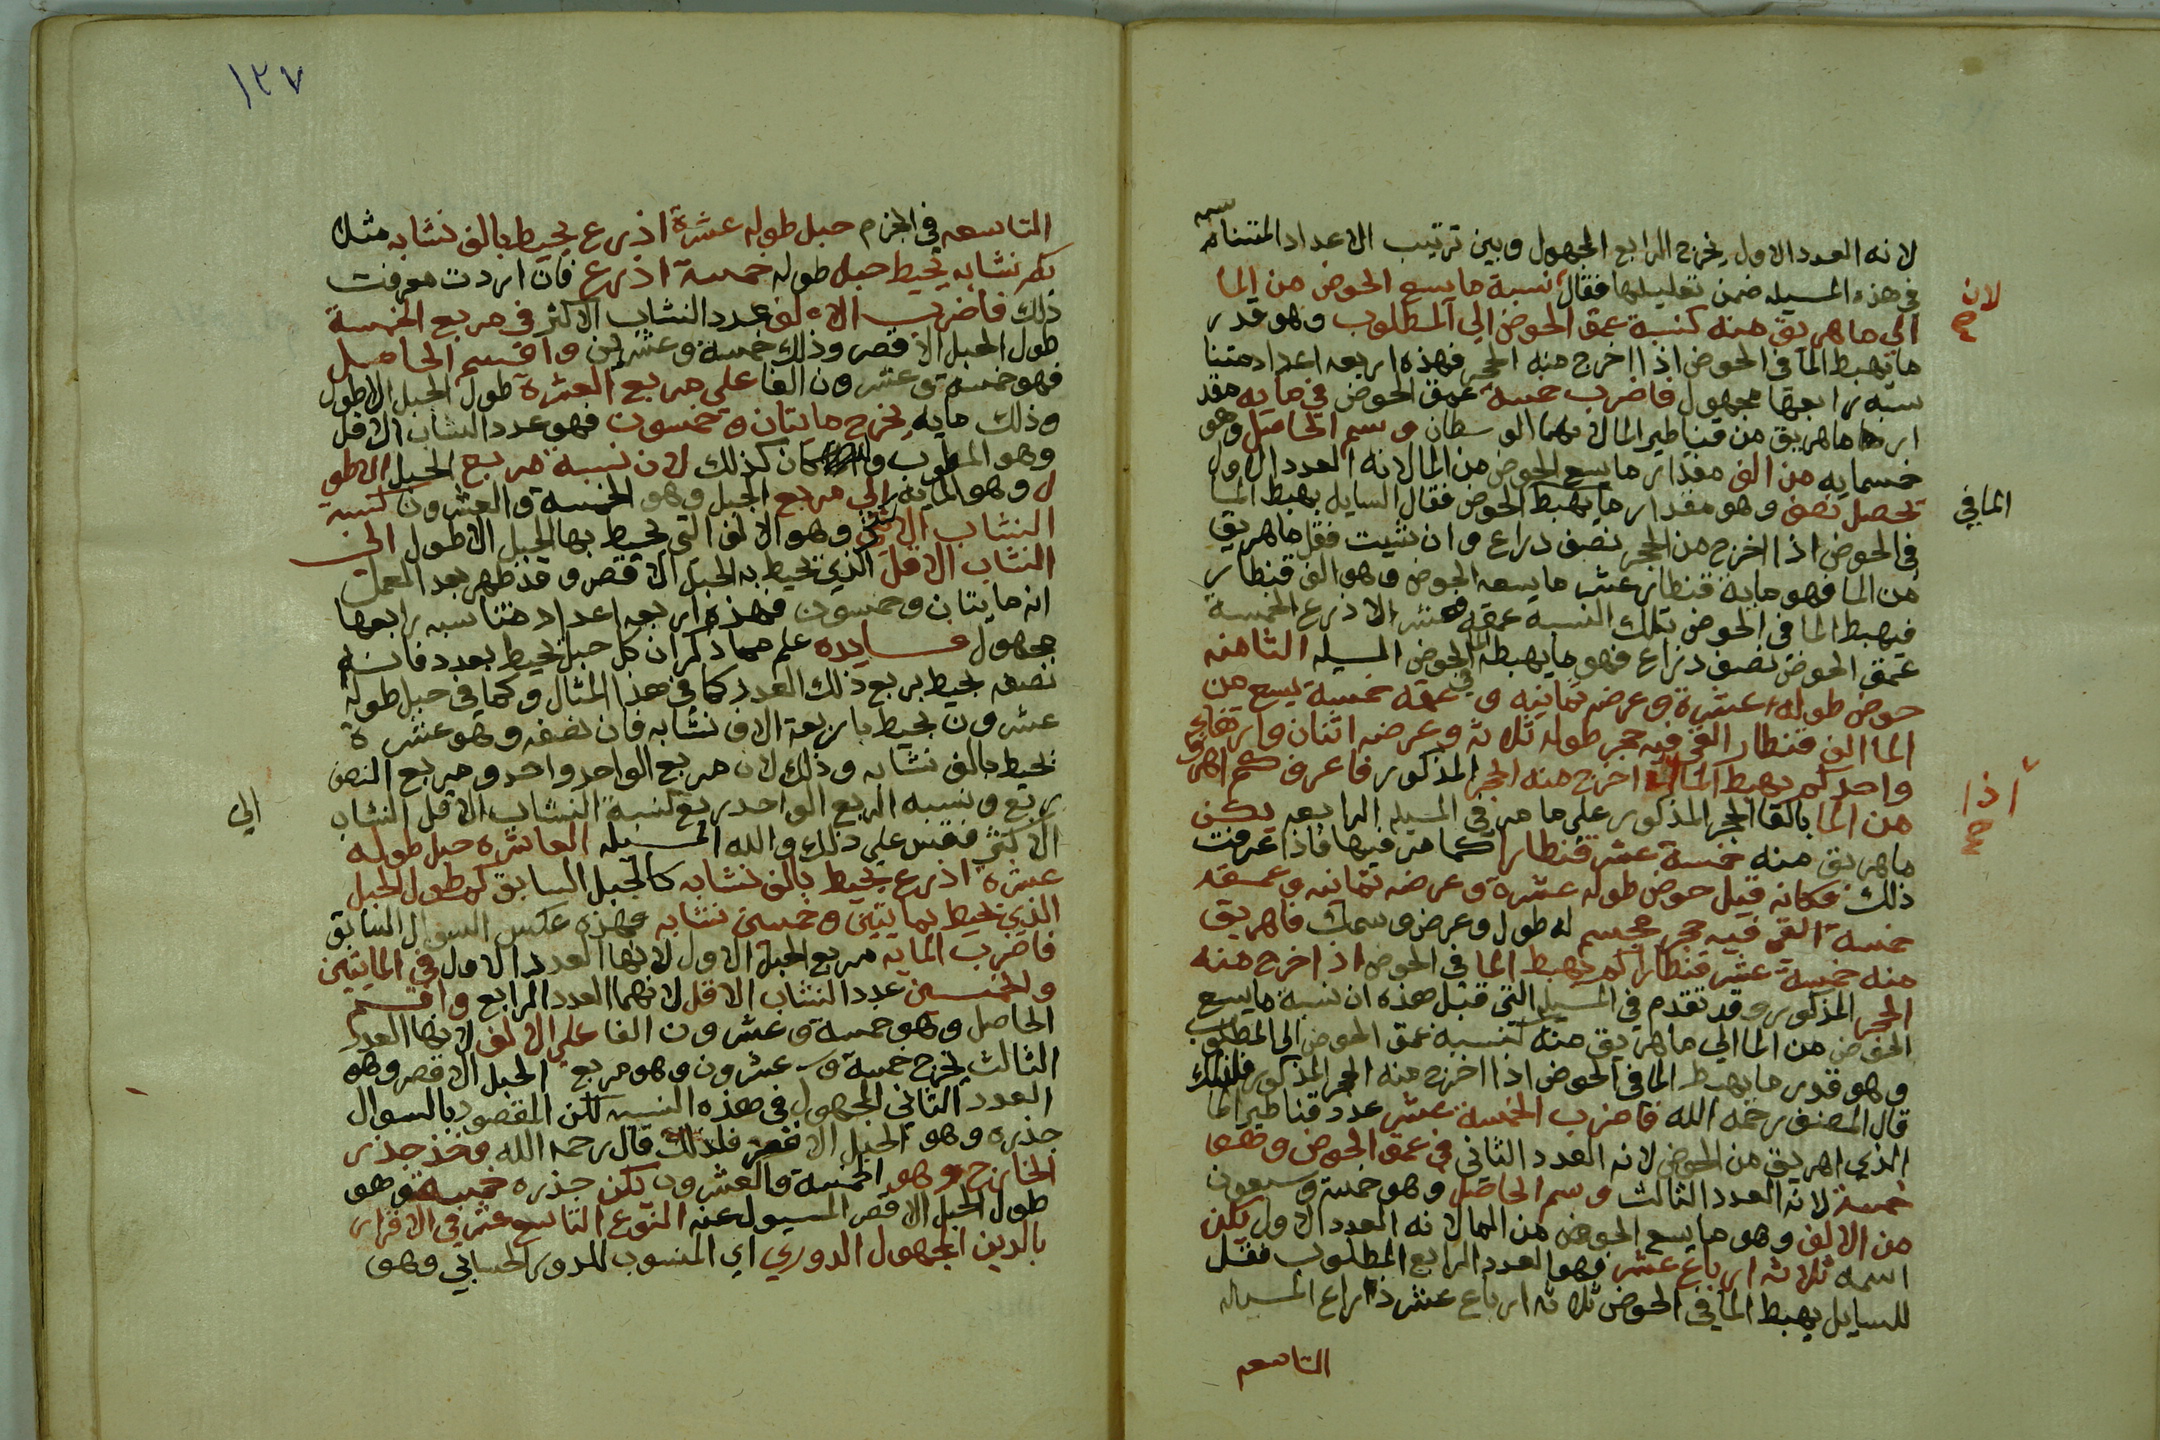 لانه العدد الاول يخرج الرابع المجهول وبين ترتيب الاعداد المتناسبه
في هذه المسيله ضمن تعليلها فقال نسبة ما يسع الحوض من الما
لان
صح
الي ما هريق منه كنسبة عمق الحوض الي المطلوب وهو قدر
ما يهبط الما في الحوض اذا اخرج منه الحجر فهذه اربعه اعداد متنا
سبه رابعها مجهول فاضرب خمسة عمق الحوض في مايه مقد
ار ما هريق من قناطير الما لانهما الوسطان وسم الحاصل وهو
خمسمايه من الف مقدار ما يسع الحوض من الما لانه العدد الاول
تحصل نصف وهو مقدار ما يهبط الحوض فقال السايل يهبط الما
الما في
في الحوض اذا اخرج من الحجر نصف دراع وان شيت فقل ما هريق
من الما فهو ماية قنطار عشر ما يسعه الحوض وهو الف قنطار
فيهبط الما في الحوض بتلك النسبة عمقه فعشر الاذرع الخمسة
عمق الحوض نصف ذراع فهو ما يهبطه الما في الحوض المسيله الثامنه
حوض طوله عشرة وعرضه ثمانيه وعمقه خمسة يسع من
الما الف قنطار القي فيه حجر طوله ثلاثه وعرضه اثنان وارتفاعه
واحد كم يهبط الما اخرج منه الحجر المذكور فاعرف كم اهرق
اذا
صح
من الما بالقا الحجر المذكور علي ما مر في المسيله الرابعه يكن
ما هريق منه خمسة عشر قنطارا كما مر فيها فاذا عرفت
ذلك فكانه قيل حوض طوله عشرة وعرضه ثمانيه وعمقه
خمسة القي فيه حجر مجسم له طول وعرض وسمك فاهريق
منه خمسة عشر قنطارا كم يهبط الما في الحوض اذا اخرج منه
الحجر المذكور وقد تقدم في المسيله التي قبل هذه ان نسبة ما يسع
الحوض من الما الي ما هريق منه كنسبة عمق الحوض الي المطلوب
وهو قدر ما يهبط الما في الحوض اذا اخرج منه الحجر المذكور فلذلك
قال المصنف رحمه الله فاضرب الخمسة عشر عدد قناطير الما
الذي اهريق من الحوض لانه العدد الثاني في عمق الحوض وهو
خمسة لانه العدد الثالث وسم الحاصل وهو خمسة وسبعون
من الالف وهو ما يسع الحوض من الما لانه العدد الاول يكن
اسمه ثلاثه ارباع عشر فهو العدد الرابع المطلوب فقل
للسايل يهبط الما في الحوض ثلاثه ارباع عشر ذراع المسيله
التاسعه
١٢٧
التاسعه في الحزم حبل طوله عشرة اذرع يحيط بالف نشابه مثلا
بكم نشابه يحيط حبل طوله خمسة اذرع فان اردت معرفت
ذلك فاضرب الالف عدد النشاب الاكثر في مربع الخمسة
طول الحبل الاقصر وذلك خمسة وعشرين واقسم الحاصل
فهو خمسة وعشرون الفا علي مربع العشرة طول الحبل الاطول
وذلك مايه يخرج مايتان وخمسون فهو عدد النشاب الاقل
وهو المطلوب وانما كان كذلك لان نسبة مربع الحبل الاطو
ل وهو المايه الي مربع الحبل وهو الخمسة والعشرون كنسبة
النشاب الاكثر وهو الالف التي يحيط بها الحبل الاطول الي
النشاب الاقل الذي يحيط به الحبل الاقصر وقد ظهر بعد العمل
انه مايتان وخمسون فهذه اربعه اعداد متناسبه رابعها
مجهول فايده علم مما ذكر ان كل حبل يحيط بعدد فان
نصفه يحيط بربع ذلك العدد كما في هذا المثال وكما في حبل طوله
عشرون يحيط باربعة الاف نشابه فان نصفه وهو عشرة
يحيط بالف نشابه وذلك لان مربع الواحد واحد ومربع النصف
ربع ونسبه الربع الواحد ربع كنسبة النشاب الاقل النشاب
الي
الاكثر فقس علي ذلك والله المسيله العاشره حبل طوله
عشرة اذرع يحيط بالف نشابه كالحبل السابق كم طول الحبل
الذي يحيط بمايتين وخمسين نشابه فهذه عكس السوال السابق
فاضرب المايه مربع الحبل الاول لانها العدد الاول في المايتين
والخمسين عدد النشاب الاقل لانهما العدد الرابع واقسم
الحاصل وهو خمسة وعشرون الفا علي الالف لانها العدد
الثالث يخرج خمسة وعشرون وهو مربع الحبل الاقصر وهو
العدد الثاني المجهول في هذه النسبه لكن المقصود بالسوال
جذره وهو الحبل الاقصر فلذلك قال رحمه الله فخذ جذر
الخارج وهو الخمسة والعشرون يكن جذره خمسة وهو
طول الحبل الاقصر المسيول عنه النوع التاسع عشر في الاقرار
بالدين المجهول الدوري اي المنسوب للدور الحسابي وهو